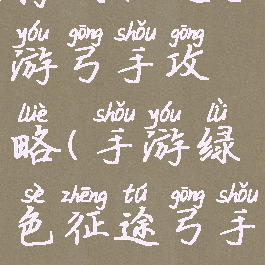 yóu gōng shǒu gōng
游弓手攻
luè shǒu yóu lǜ
略(手游绿
sè zhēng tú gōng shǒu
色征途弓手